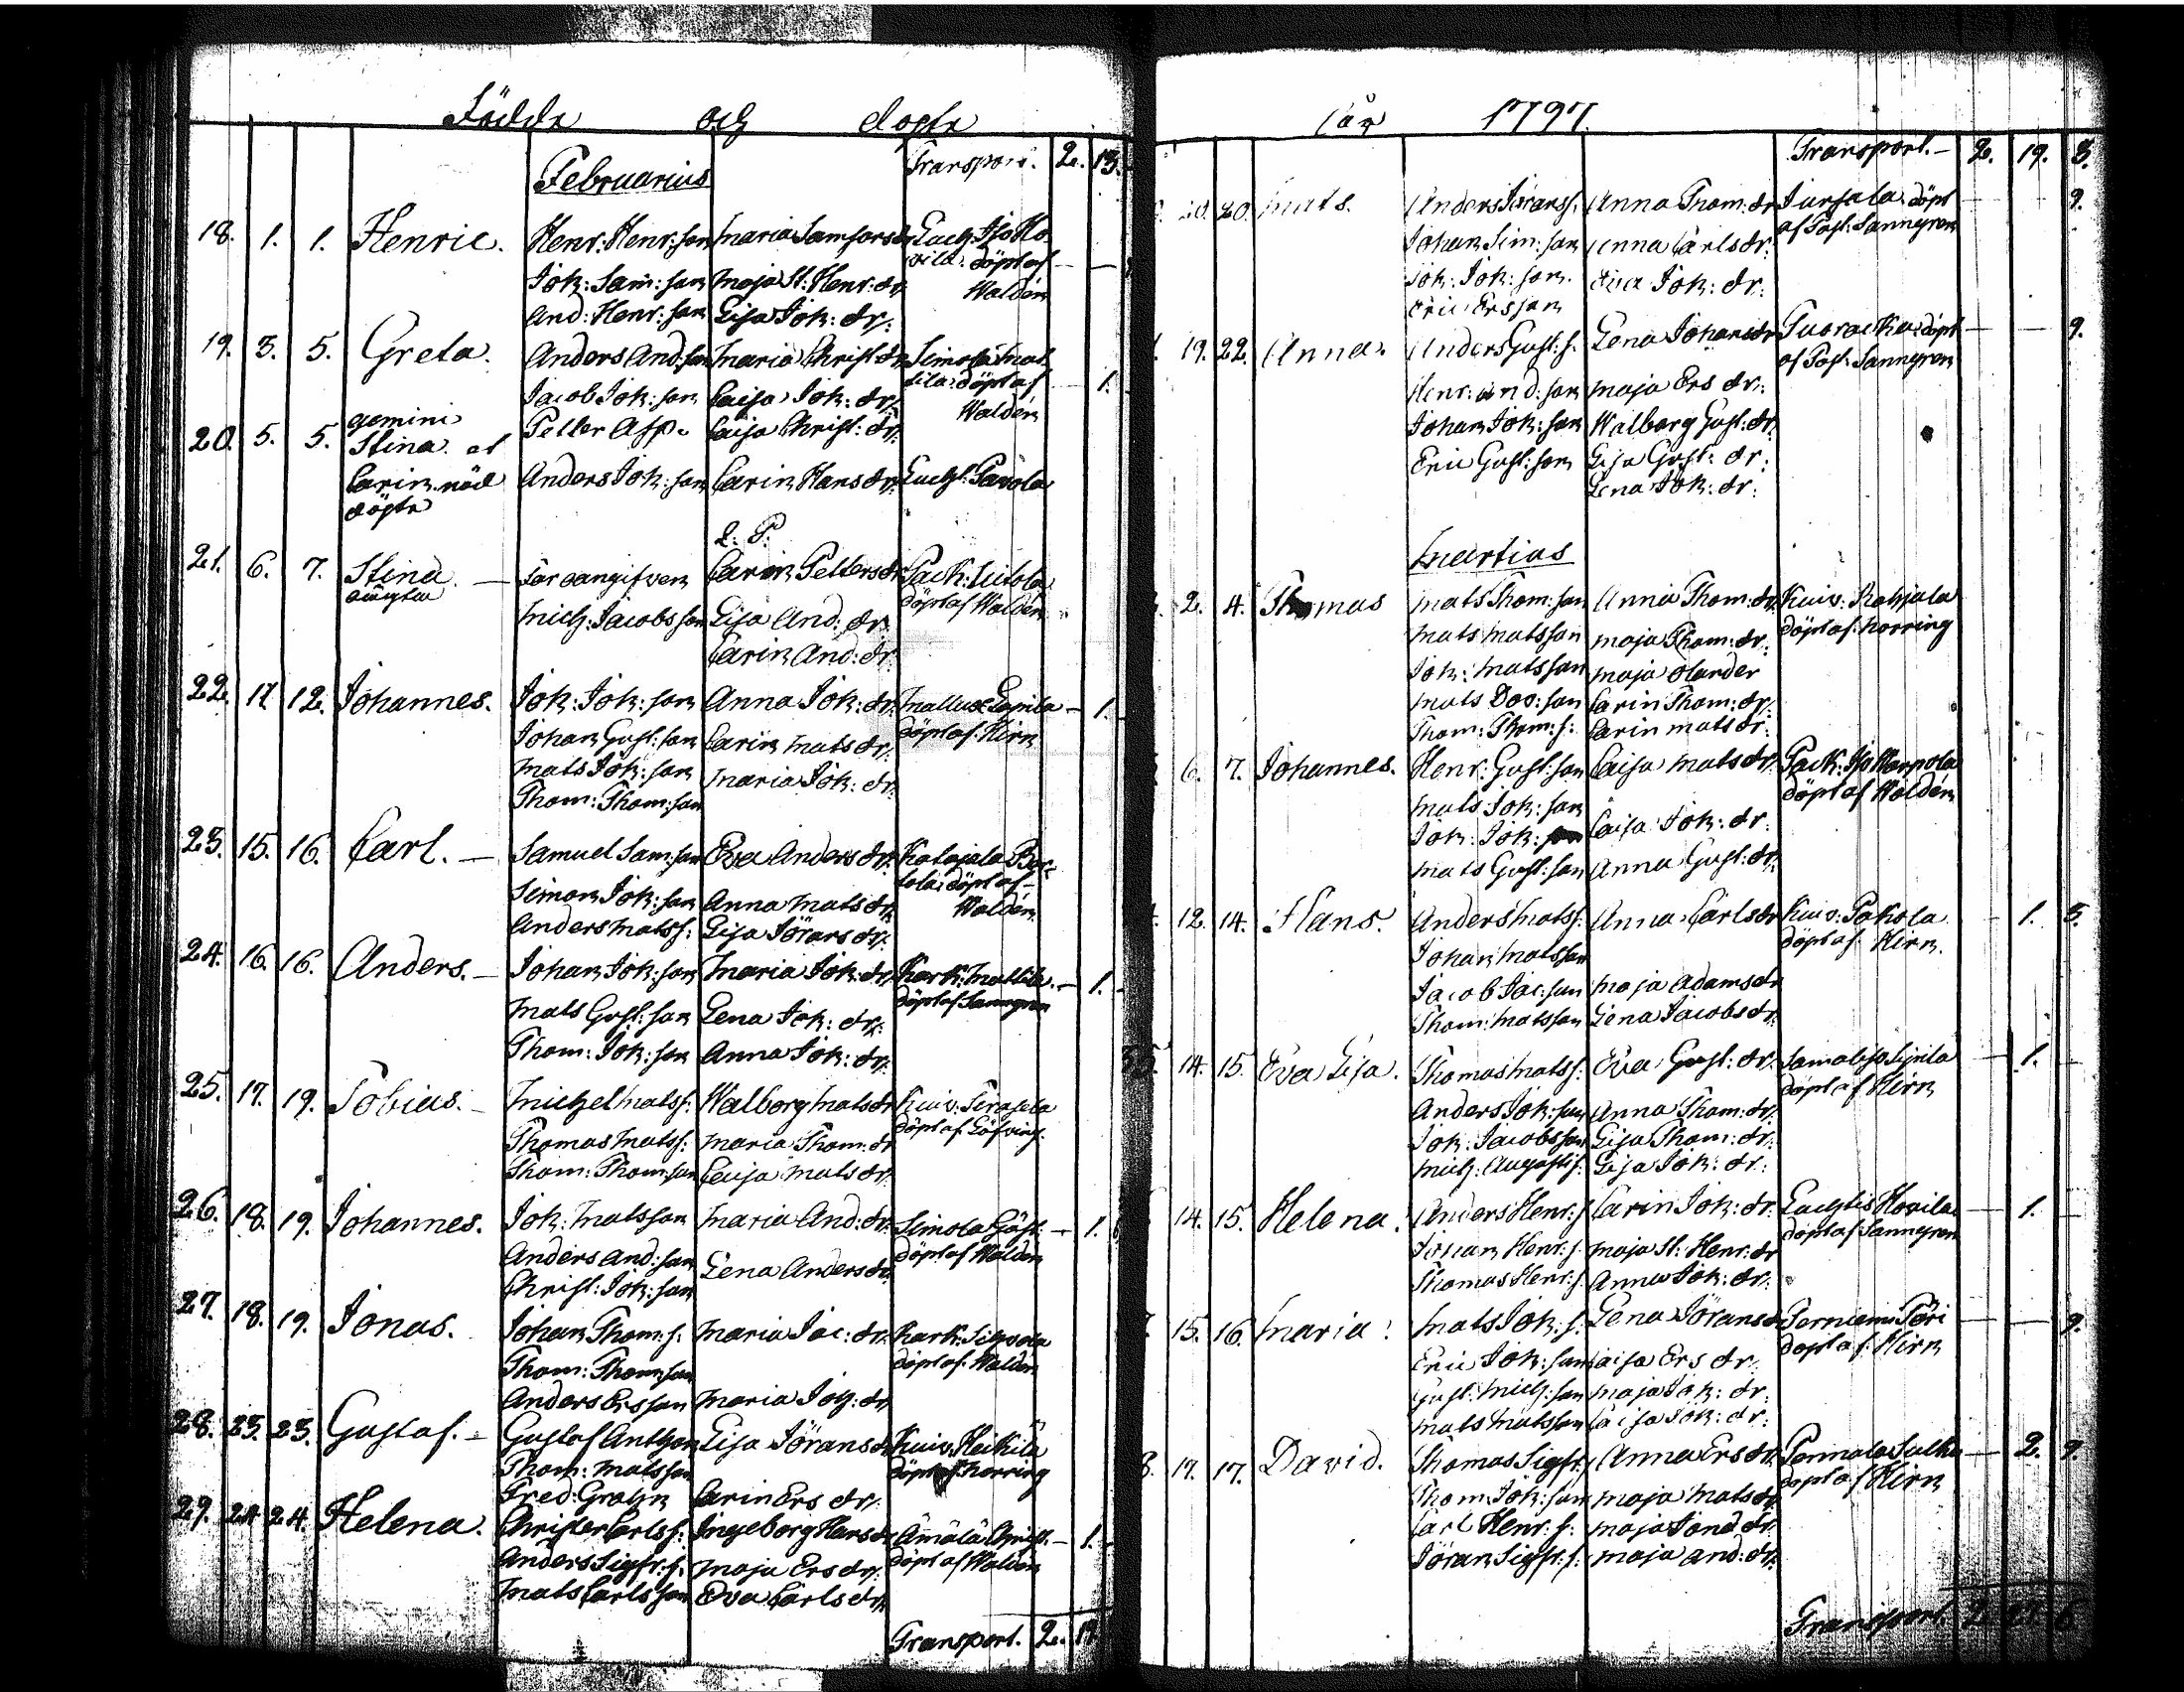 Födde och döpte
Februarius Transport. 2. 13.
18. 1. 1. Henric. Henr: Henr: son Maria Samsons dr
Joh: Sam: son Maja St: Henr: dr. döpt af
And: Henr: son Lisa Joh: dr: Waldén
19. 3. 5. Greta. Anders And: son Maria Christ: dr Simola Mat
Jacob Joh: son Caisa Joh: dr: tila döpt af 1.
Petter Asp. Caisa Christ: dr: Waldén
gemini
20. 5. 5. Stina et
Carin nöd Anders Joh: son Carin Hans dr: Lucht: Pavola
döpte
L. P.
21. 6. 7. Stina. — Far oangifven Carin Petters dr
oäkta döpt af Waldén
Mich: Jacobs son Lisa And: dr:
Carin And: dr:
22. 11. 12. Johannes. Joh: Joh: son Anna Joh: dr: — 1.
Johan Gust: son Carin Mats dr: döpt af Kirn
Mats Joh: son Maria Joh: dr.
Thom: Thom: son
23. 15. 16. Carl. — Samuel Sam: son Eva Anders dr: Katajala Ber-
tola döpt af
Simon Joh: son Anna Mats dr: Waldén
Anders Mats s: Lisa Jörans dr:
24. 16. 16. Anders. — Johan Joh: son Maria Joh: dr: Kark: Mattila — 1.
Mats Gust: son Lena Joh: dr: döpt af Sannegren
Thom: Joh: son Anna Joh: dr:
25. 17. 19. Tobias. — Michel Mats s: Walborg Mats dr Kuiv:
Thomas Mats s: Maria Thom: dr döpt af Löfving.
Thom: Thom: son Caisa Mats dr.
26. 18. 19. Johannes. Joh: Mats son Maria And: dr: Simola — 1.
Anders And: son Lena Anders dr döpt af Waldén
Christ: Joh: son
27. 18. 19. Jonas. Johan Thom: s. Maria Jac: dr: Kark:
Thom: Thom: son döpt af Waldén
Anders Ers son Maria Joh: dr
28. 23. 23. Gustaf. — Gustaf Anth son Lisa Jörans dr Kuiv: Heikilä
Thom: Mats son döpt af Norring
Fred: Grahn Carin Ers dr:
29. 24. 24. Helena. Christer Carls s: Ingeborg Hans dr Ämälä Christ. — 1.
Anders Sigfr: s: Maja Ers dr: döpt af Waldén
Mats Carls son Eva Carls dr:
Transport. 2. 19.
År 1797
Transport. — 2. 19. 3.
20. 20. Mats. Anders Jörans s. Anna Thom: dr döpt — 9.
Johan Sim: son Anna Carls dr: af Past: Sannegren
Joh: Joh: son Eva Joh: dr:
Eric Ers son
19. 22. Anna. Anders Gust: s. Lena Johans dr döpt — 9.
Henr: And: son Maja Ers dr: af Past: Sannegren
Johan Joh: son Walborg Gust: dr:
Eric Gust: son Lisa Gust: dr:
Lena Joh: dr:
Martius
2. 4. Thomas Mats Thom: son Anna Thom: dr: Kuiv: Rahjala
Mats Mats son Maja Thom: dr: döpt af Norring
Joh: Mats son Maja Olander
Mats Dav: son Carin Thom: dr:
Thom: Thom: s: Carin Mats dr:
6. 7. Johannes. Henr: Gust: son Caisa Mats dr:
Mats Joh: son döpt af Waldén
Joh: Joh: son Caisa Joh: dr:
Mats Gust: son Anna Gust: dr:
12. 14. Hans. Anders Mats s: Anna Carls dr Kuiv: Pakola — 1. 3.
Johan Mats son döpt af Kirn
Jacob Jac: son Maja Adams dr
Thom: Mats son Lena Jacobs dr:
14. 15. Eva Lisa. Thomas Mats s: Eva Gust: dr: — 1.
döpt af Kirn
Anders Joh: son Anna Thom: dr:
Joh: Jacobs son Lisa Thom: dr:
Mich: August: s: Lisa Joh: dr:
14. 15. Helena. Anders Henr: s Carin Joh: dr: Luchtis Hovila — 1.
Johan Henr: s. Maja St: Henr: dr döpt af Sannegren
Thomas Henr: s. Anna Joh: dr:
15. 16. Maria. Mats Joh: s: Lena Jörans dr Perniemi Pöri — 9.
Eric Joh: son Caisa Ers dr: döpt af Kirn
Gust: Mich: son Maja Joh: dr:
Mats Mats son Caisa Joh: dr:
17. 17. David. Thomas Sigfr: s. Anna Ers dr: Pennala Sulku — 2. 9.
Thom: Joh: son Maja Mats dr: döpt af Kirn
Carl Henr: s: Maja Jonæ dr.
Jöran Sigfr: s: Maja And: dr:
Transport.